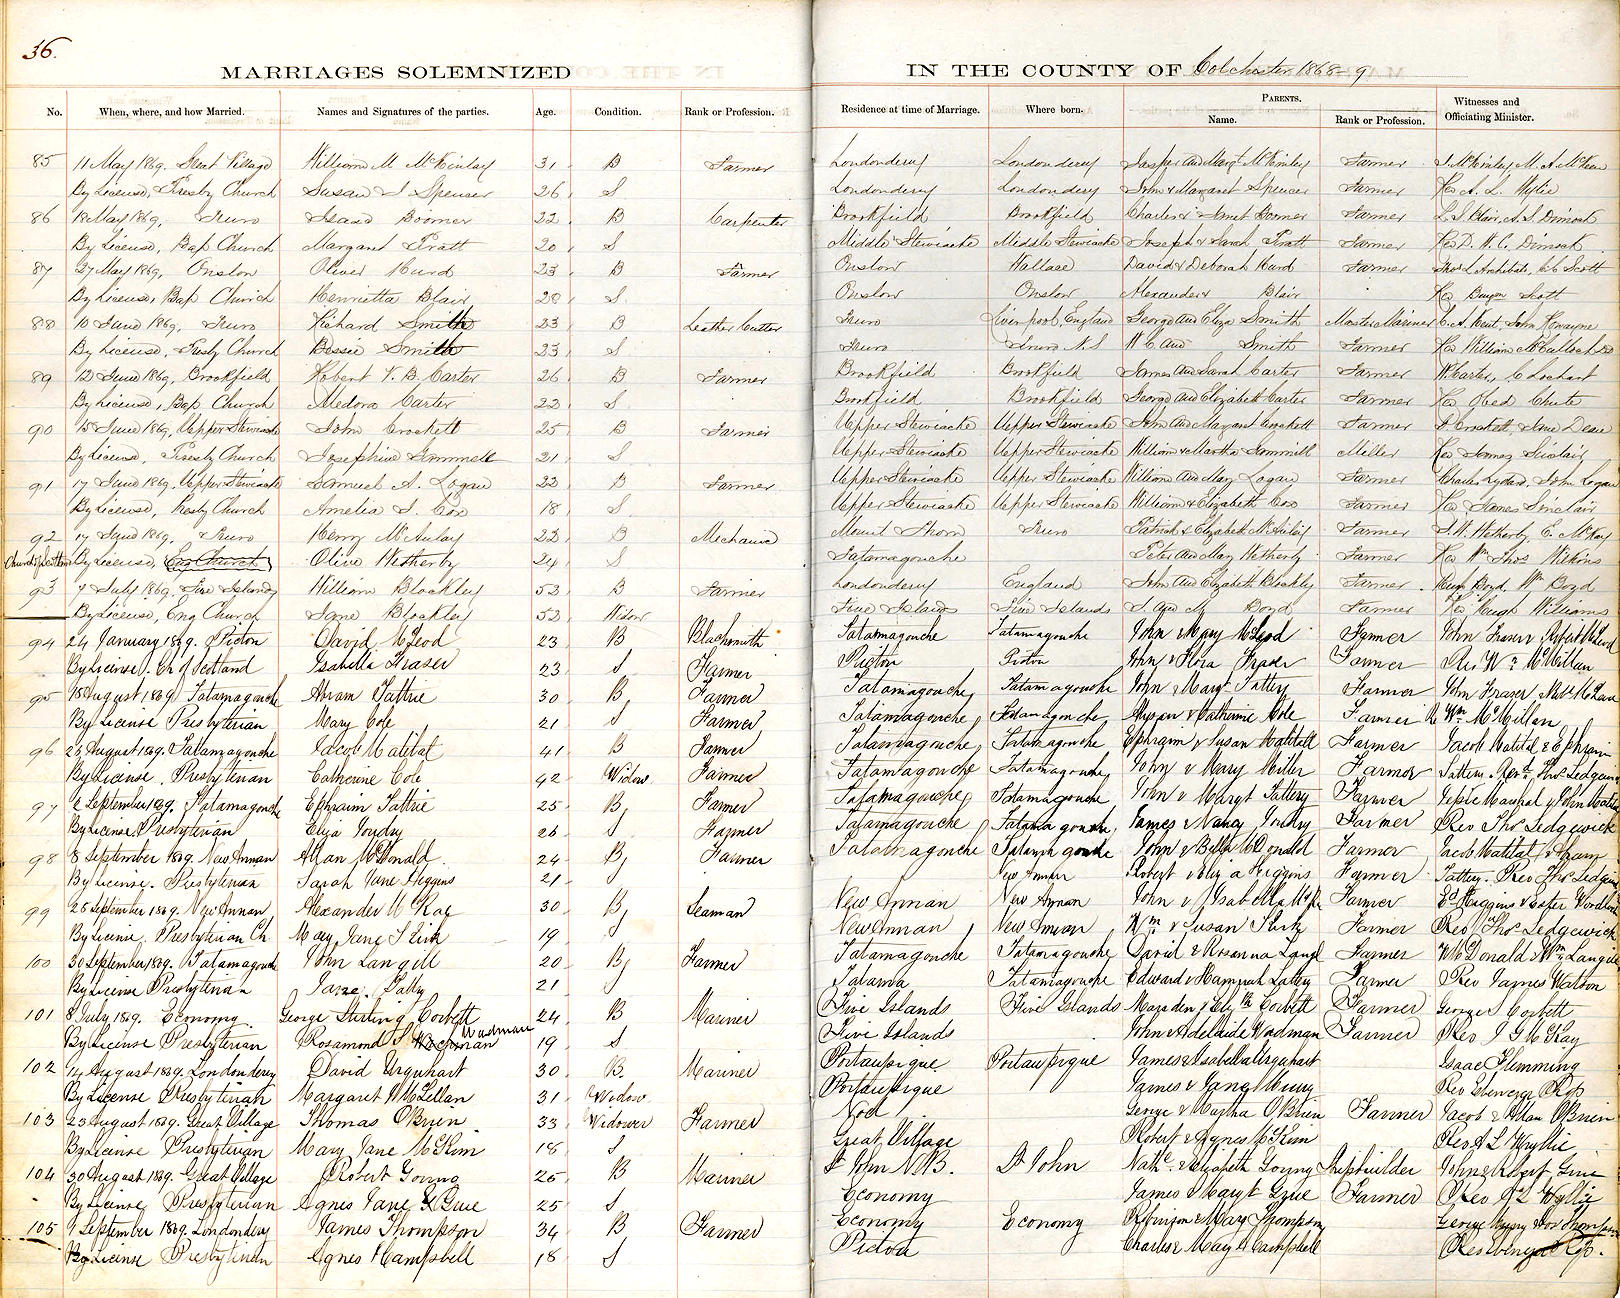 36.
MARRIAGES SOLEMNIZED IN THE COUNTY OF Colchester 1868-9
No. When, where, and how Married. Names and Signatures of the parties. Age. Condition. Rank or Profession. Residence at time of Marriage. Where born. PARENTS. Name. Rank or Profession. Witnesses and Officiating Minister.
85 11 May 1869. Great Village William M McKinlay 31 B Farmer Londonderry Londonderry Jasper and Margt McKinlay Farmer
By License, Presby Church Susan I Spencer 26 S Londonderry Londonderry John & Margaret Spencer Farmer Rev A. L. Wylie
86 18 May 1869, Truro Isaac Boomer 22 B Carpenter Brookfield Brookfield Charles & Janet Boomer Farmer L. S. Blair, A. S. Dimock
By License, Bap Church Margaret Pratt 20 S Middle Stewiacke Middle Stewiacke Joseph & Sarah Pratt Farmer Rev D. W. C. Dimock
87 27 May 1869, Onslow Oliver Hurd 23 B Farmer Onslow Wallace David & Deborah Hurd Farmer Scott
By License, Bap Church Henrietta Blair 28 S Onslow Onslow Alexander & Blair Rev Scott
88 10 June 1869, Truro Richard Smith 23 B Leather Cutter Truro Liverpool, England George and Eliza Smith Master Mariner C. A. Kent, John
By License, Presby Church Bessie Smith 23 S Truro Truro N.S W C and Smith Farmer Rev William McCulloch DD
89 12 June 1869, Brookfield Robert V. B. Carter 26 B Farmer Brookfield Brookfield James and Sarah Carter Farmer W Carter, C Lochart
By License, Bap Church Medora Carter 22 S Brookfield Brookfield George and Elizabeth Carter Farmer Rev Obed Chute
90 15 June 1869, Upper Stewiacke John Crockett 25 B Farmer Upper Stewiacke Upper Stewiacke John and Margaret Crockett Farmer Crockett, Jane
By License, Presby Church Josephine Gammell 21 S Upper Stewiacke Upper Stewiacke William & Martha Gammell Miller Rev James Sinclair
91 17 June 1869. Upper Stewiacke Samuel A. Logan 23 B Farmer Upper Stewiacke Upper Stewiacke William and Mary Logan Farmer Charles John Logan
By License, Presby Church Amelia I. Cox 18 S Upper Stewiacke Upper Stewiacke William & Elizabeth Cox Farmer Rev James Sinclair
92 17 June 1869. Truro Henry McAulay 22 B Mechanic Mount Thom Truro Patrick & Elizabeth McAulay Farmer J. W. Wetherby, E. McKay
Church of Scotland By License, Eng Church Olive Wetherby 24 S Tatamagouche Peter and Mary Wetherby Farmer Rev Wm Thos Wilkins
93 7 July 1869. Five Islands William Blockley 52 B Farmer Londonderry England John and Elizabeth Blockley Farmer Hugh Boyd, Wm Boyd
By License, Eng Church Jane Blockley 52 Widow Five Islands Five Islands J. and M Boyd Farmer Rev Hugh Williams
94 24 January 1869. Pictou David McLeod 23 B Blacksmith Tatamagouche Tatamagouche John & Mary McLeod Farmer John Fraser & Robert McLeod
By License. Ch of Scotland Isabella Fraser 23 S Farmer Pictou Pictou John & Flora Fraser Farmer Rev Wm McMillan
95 18 August 1869. Tatamagouche Abram Tattrie 30 B Farmer Tatamagouche Tatamagouche John & Margt Tattery Farmer John Fraser
By License Presbyterian Mary Cole 21 S Farmer Tatamagouche Tatamagouche & Catherine Cole Farmer R Wm McMillan
96 23 August 1869. Tatamagouche Jacob Matitat 41 B Farmer Tatamagouche Tatamagouche Ephraim & Susan Matitall Farmer Jacob Matital & Ephraim
By License. Presbyterian Catherine Cole 42 Widow Farmer Tatamagouche Tatamagouche John & Mary Miller Farmer Tattery. Revd Thos Sedgewick
97 2 September 1869. Tatamagouche Ephraim Tattrie 25 B Farmer Tatamagouche Tatamagouche John & Margt Tattery Farmer
By License Presbyterian Eliza 26 S Farmer Tatamagouche Tatamagouche James & Nancy Farmer Rev Thos Sedgewick
98 8 September 1869. New Annan Allan McDonald 24 B Farmer Tatamagouche Tatamagouche John & Bella McDonald Farmer Jacob Matital & Abram
By License. Presbyterian Sarah Jane Higgins 21 S New Annan Robert & Eliza Higgins Farmer Tattery. Rev Thos Sedgwick
99 28 September 1869. New Annan Alexander McRae 30 B Seaman New Annan New Annan John & Isabella McRae Farmer Ed Higgins &
By License, Presbyterian Ch. Mary Jane Shirk 19 S New Annan New Annan Wm & Susan Farmer Rev Thos Sedgewick
100 30 September 1869. Tatamagouche John Langill 20 B Farmer Tatamagouche Tatamagouche David & Rosanna Langl Farmer W McDonald & Wm Langill
By License Presbyterian Jane. Tatty 21 S Tatama Tatamagouche Edward & Hannah Farmer Rev James Watson
101 8 July 1869. Economy George Sterling Corbett 24 B Mariner Five Islands Five Islands Marsden & Elizth Corbett Farmer George Corbett
By License Presbyterian Rosamond S Wadman 19 S Five Islands John & Adelaide Wadman Farmer Rev J G McKay
102 14 August 1869. Londonderry David Urquhart 30 B. Mariner Portaupique Portaupique James & Isabella Urquhart Isaac Flemming
By License Presbyterian Margaret McLellan 31 Widow Portaupique James & Jane Rev Ebenezer
103 23 August 1869. Great Village Thomas O'Brien 33 Widower Farmer Noel George & Martha O'Brien Farmer Jacob & Adam O'Brien
By License Presbyterian Mary Jane McKim 18 S Great Village Robert & Agnes McKim Rev A L Wyllie
104 30 August 1869. Great Village Robert Young 26 B Mariner St John N.B. St John Nathl. & Elizabeth Young Shipbuilder John & Robert
By License Presbyterian Agnes Jane Grue 25 S Economy James & Margt Grue Farmer Rev A L Wyllie
105 9 September 1869. Londonderry James Thompson 34 B Farmer Economy Economy Robinson & Mary Thompson George
By License Presbyterian Agnes Campbell 18 S Pictou Charles & Mary Campbell